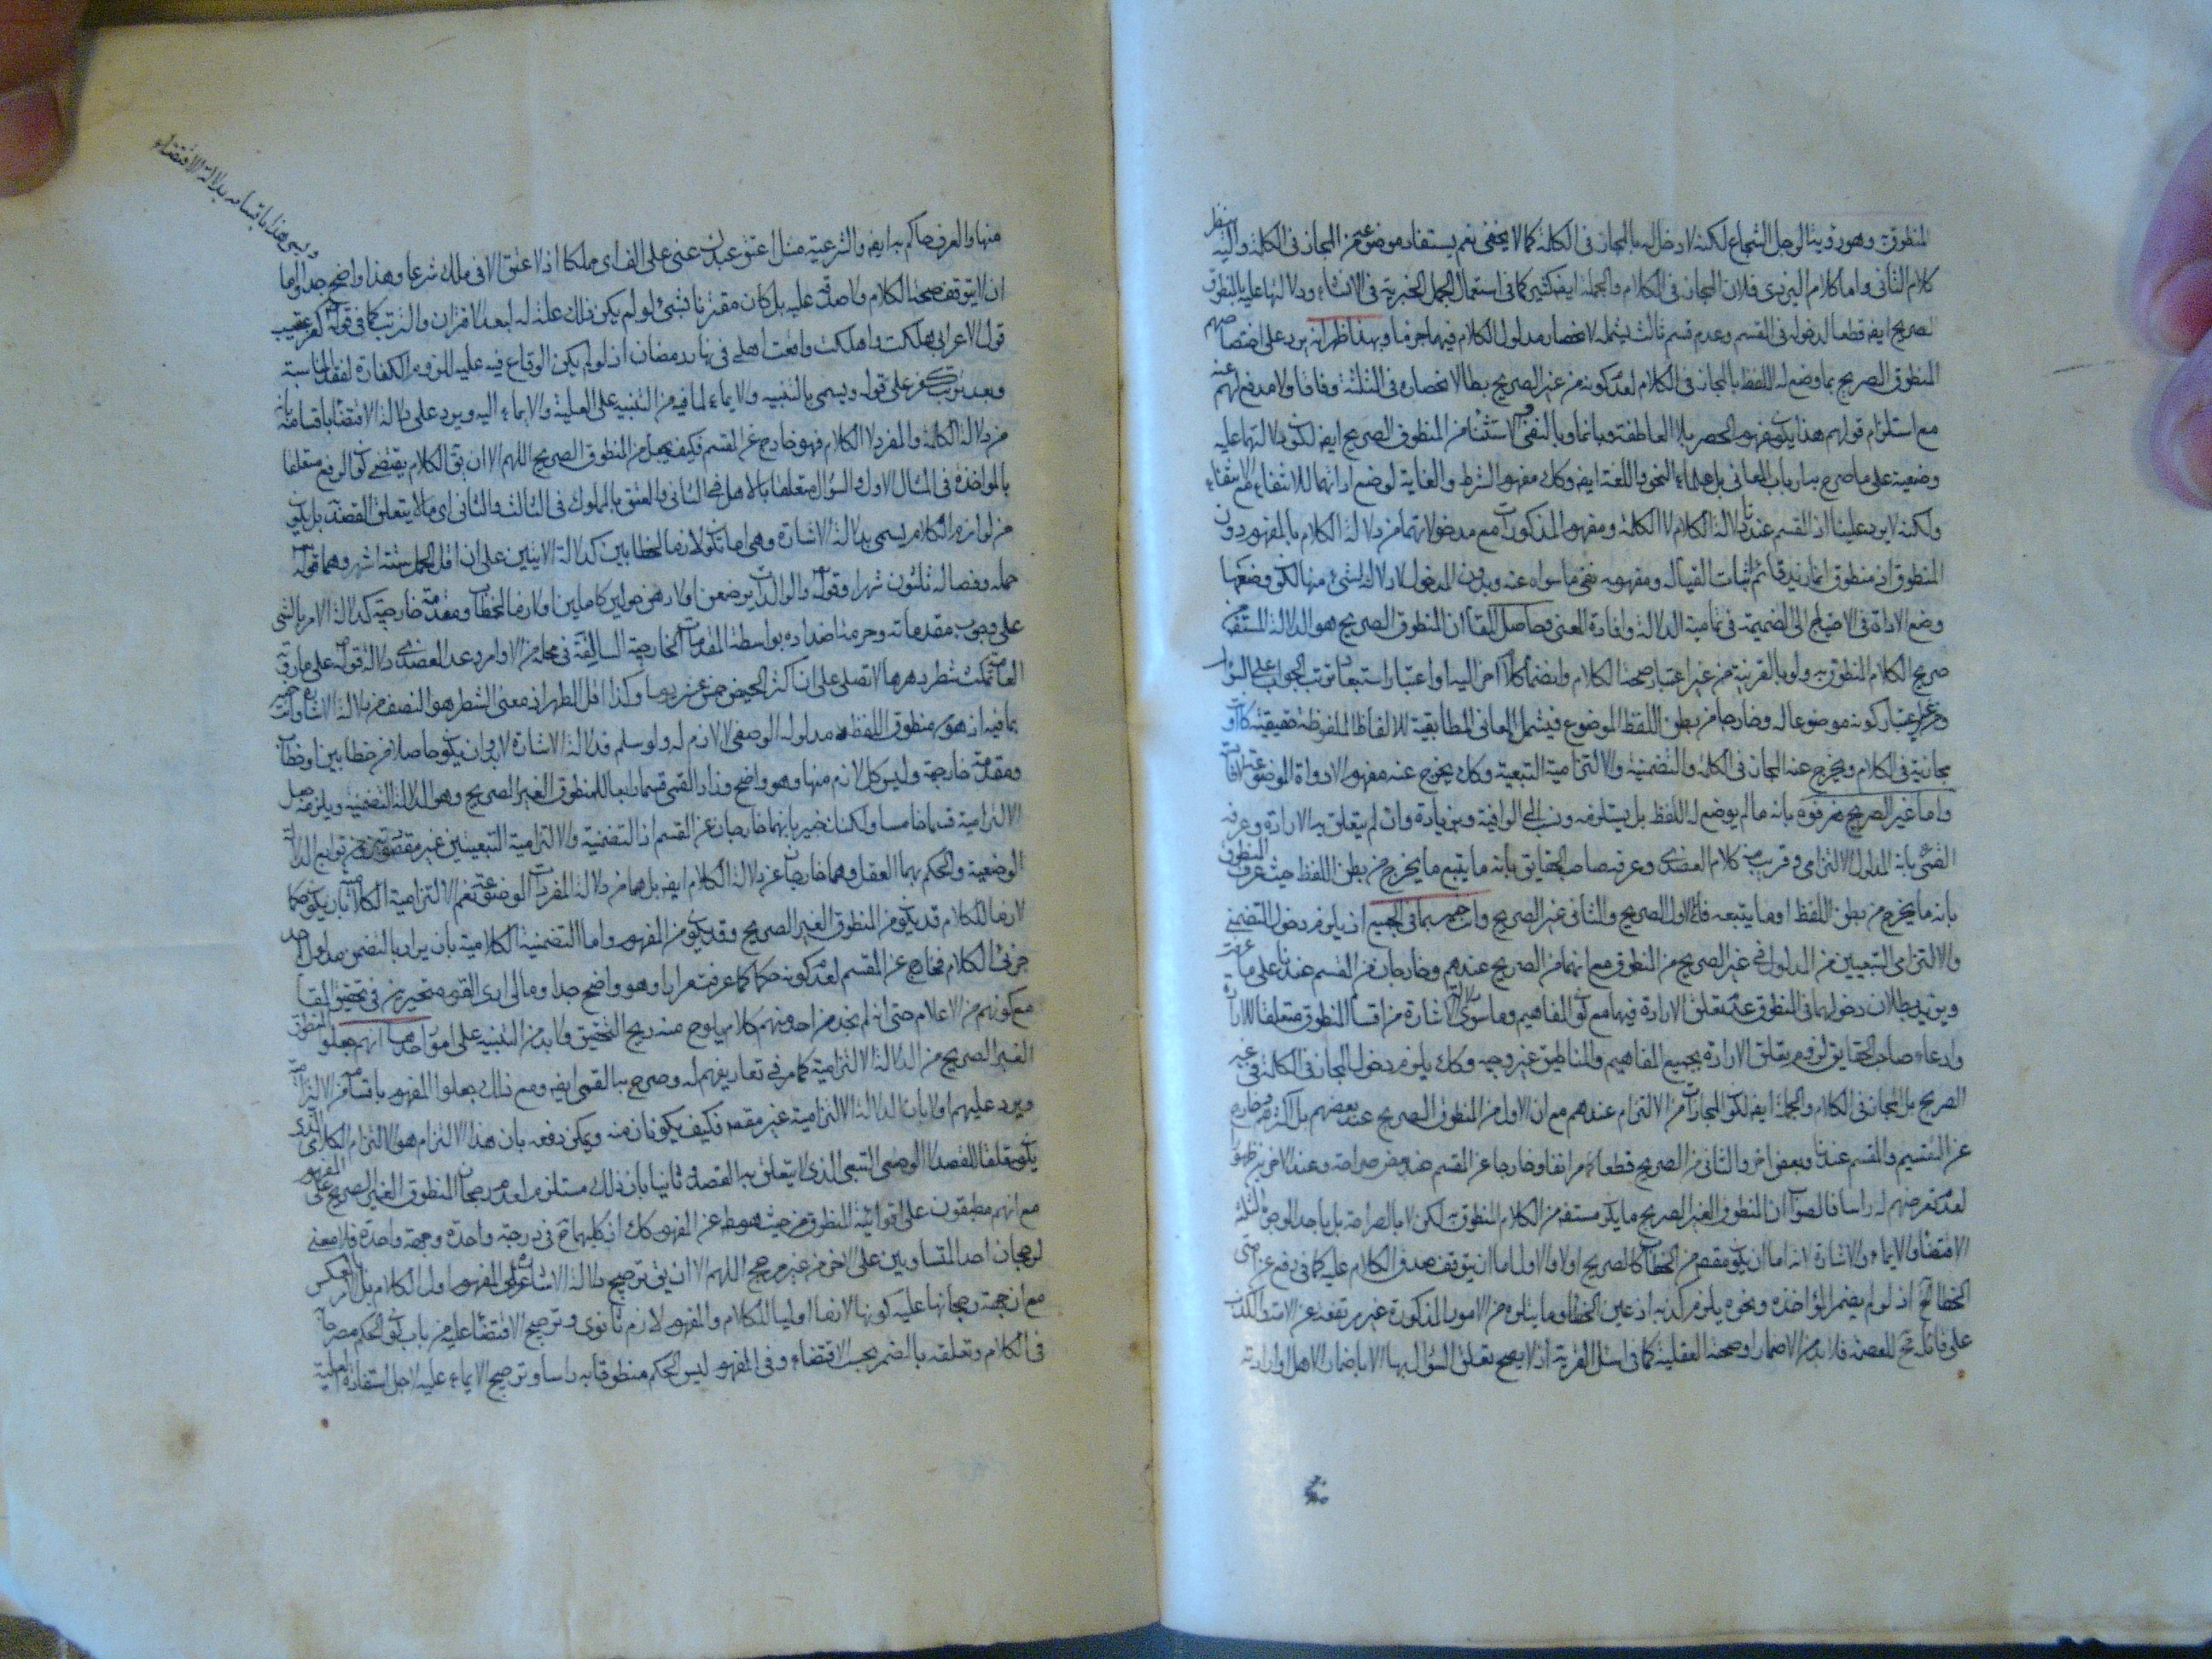 المنطوق وهو رؤية الرجل الشجاع لكنه لا دخل له بالمجاز في الكلمة كما لا يخفى نعم يستفاد من المجاز في الكلمة واليه ينظر
كلام الثاني واما كلام اليزدي فلان المجاز في الكلام والجملة ايضا كثير كما في استعمال الجمل الخبرية في الانشاء ودلالتها عليه بالمنطوق
الصريح ايضا قطعا لدخوله في القسم وعدم قسم ثالث يشمله لانحصار مدلول الكلام فيهما جزما وبهذا ظهر انه يرد على
المنطوق الصريح بما وضع له اللفظ بالمجاز في الكلام لعدم كونه من غير الصريح بطلا لانحصاره في الثلثة وفاقا ولا مدفع لهم عنه
مع استلزام قولهم هذا يكون مفهوم الحصر بلا العاطفة وبانما وبالنفي والاستثناء من المنطوق الصريح ايضا لكون دلالتها عليه
وضعية على ما صرح به ارباب المعاني بل علماء النحو واللغة ايضا وكك مفهوم الشرط والغاية لوضع اداتهما للانتفاء
ولكنه لا يرد علينا اذ المقسم عندنا دلالة الكلام لا الكلمة ومفهوم المذكورات مع مدخولاتها من دلالة الكلام بالمفهوم دون
المنطوق اذ منطوق انما زيد قائم اثبات القيام له ومفهومه نفي ما سواه عنه وبدون المدخول لا دلالة لشيء منها لكون وضعها
وضع الاداة في الاحتياج الى الضميمة في تمامية الدلالة وافادة المعنى وحاصل المقام ان المنطوق الصريح هو الدلالة المستفادة من
صريح الكلام المنطوق به ولو بالقرينة من غير اعتبار صحة الكلام وانضمام كلام اخر اليه او اعتبار استبعاد ترتب الجواب على السؤال
كونه موضوعا له وخارجا من بطن اللفظ الموضوع فيشمل المعاني المطابقية للالفاظ الملفوظة حقيقية كانت او
مجازية في الكلام ويخرج عنه المجاز في الكلمة والتضمنية والالتزامية التبعية وكك يخرج عنه مفهوم الادواة الموضوعة
واما غير الصريح فعرفوه بانه ما لم يوضع له اللفظ بل يستلزمه الوافية وبزيادة وان لم يتعلق به الارادة وعرفه
القمي بانه المدلول الالتزامي وقريب منه كلام العضدي وعرفه صاحب الحقايق بانه ما يتبع ما يخرج من بطن اللفظ حيث عرف المنطوق
بانه ما يخرج من بطن اللفظ او ما يتبعه فالاول الصريح والثاني غير الصريح وانت خبير بما في الجميع اذ يلزم دخول التضمني
والالتزامي التبعيين من المدلول في غير الصريح من المنطوق مع انهما من الصريح عندهم وخارجان من المقسم عندنا على ما عرفت
ويزيد بطلان دخولهما في المنطوق عدم تعلق الارادة فيهما مع كون المفاهيم وما سوى دلالة الاشارة من اقسام المنطوق متعلقا للارادة
وادعاء صاحب الحقايق لزوم تعلق الارادة بجميع المفاهيم والمناطيق غير وجيه وكك يلزم دخول المجاز في الكلمة في غير
الصريح بل المجاز في الكلام والجملة ايضا لكون المجازات من الالتزام عندهم مع ان الاول من المنطوق الصريح عند بعضهم بل اكثرهم وخارج
عن التقسيم والمقسم عندنا وبعض اخر والثاني من الصريح قطعا كما مر انفا وخارجا عن المقسم عند بعض صراحة وعند الاخرين ظهورا
لعدم تعرضهم له راسا فالصواب ان المنطوق الغير الصريح ما يكون مستفادا من الكلام المنطوق به لكن لا بالصراحة بل باحد الوجوه الثلثة
الاقتضاء والايماء والاشارة لانه اما ان يكون مقصودا من الخطاب كالصريح اولا والاول اما ان يتوقف صدق الكلام عليه كما في رفع عن امتي
الخطاء الخ اذ لو لم يضمر المؤاخذة ونحوه يلزم كذبه اذ عين الخطاء وما يتلوه من الامور المذكورة غير مرتفعة عن الامة والكذب
على قائله مح للعصمة فلا بد من الاضمار او صحته العقلية كما في اسئل القرية اذ لا يصح تعلق السؤال بها الا باضمار الاهل او ارادته
منها والعرف حاكم به ايضا والشرعية مثل اعتق عبدك عني على الف اي مملكا اذ لا عتق الا في ملك شرعا وهذا واضح جدا واما
ويسمى هذا باقسامه بدلالة الاقتضاء
ان لا يتوقف صحة الكلام ولا صدقه عليه بل كان مقترنا بشيء لو لم يكن ذلك علة له لبعد الاقتران والترتب كما في قوله كفر عقيب
قول الاعرابي هلكت واهلكت واقعت اهلي في نهار رمضان اذ لو لم يكن الوقاع فيه علية للزوم الكفارة لفقد المناسبة
وبعد ترتب كفر على قوله ويسمى بالتنبيه والايماء لما فيه من التنبيه على العلية والايماء اليه ويرد على دلالة الاقتضاء باقسامه انه
من دلالة الكلمة والمفرد لا الكلام فهو خارج عن المقسم فكيف يجعل من المنطوق الصريح اللهم الا ان يق الكلام يقتضي كون الرفع متعلقا
بالمؤاخذة في المثال الاول والسؤال متعلقا بالاهل في الثاني والعتق بالمملوك في الثالث والثاني اي ما لا يتعلق القصد به بل يكون
من لوازم الكلام يسمى بدلالة الاشارة وهي اما تكون لازما لخطابين كدلالة الايتين على ان اقل الحمل ستة اشهر وهما قوله
حمله وفصاله ثلثون شهرا وقوله والوالدات يرضعن اولادهن حولين كاملين او لازما لخطاب ومقدمة خارجية كدلالة الامر بالشيء
على وجوب مقدماته وحرمة اضداده بواسطة المقدمات الخارجية السالفة في محله من الاوامر وعد العضدي دلالة قوله على ما رواه
العامة تمكث شطر دهرها لا تصلي على ان اكثر الحيض خمسة عشر يوما وكذا اقل الطهر اذ معنى الشطر هو النصف من دلالة الاشارة وانت خبير
بما فيه اذ هو منطوق اللفظ ومدلوله الوصفي لا لازم له ولو سلم فدلالة الاشارة لا بد وان يكون حاصلا من خطابين او خطاب
ومقدمة خارجية وليس كل لازم منها وهو واضح وزاد القمي قسما رابعا للمنطوق الغير الصريح وهو الدلالة التضمنية ويلزمه جعل
الالتزامية قسما خامسا ولكنك خبير بانهما خارجان عن المقسم اذ التضمنية والالتزامية التبعيتين غير مقصودتين من توابع الدلالة
الوضعية والحكم بهما العقل وهما خارجان عن دلالة الكلام ايضا بل هما من دلالة المفردات الموضوعة نعم الالتزامية الكلامية بان يكون حكما
لازما للكلام قد يكون من المنطوق الغير الصريح وقد يكون من المفهوم واما التضمنية الكلامية بان يراد بالتضمن مدلول احد
جزئي الكلام فخارج عن المقسم لعدم كونه حكما كما عرفت مرارا وهو واضح جدا وما لي ارى القوم متحيرين في تحقيق المقام
مع كونهم من الاعلام حتى انه لم نجد من احد منهم كلاما يلوح منه ريح التحقيق ولا بد من التنبيه على امور احدها انهم جعلوا المنطوق
الغير الصريح من الدلالة الالتزامية كما مر في تعاريفهم له وصرح به القمي ايضا ومع ذلك جعلوا المفهوم باقسامه من الالتزامية
ويرد عليهم اولا بان الدلالة الالتزامية غير مقصودة فكيف يكونان منه ويمكن دفعه بان هذا الالتزام هو الالتزام الكلامي الذي
يكون متعلقا للقصد لا الوضعي التبعي الذي لا يتعلق به القصد وثانيا بان ذلك مستلزم لعدم رجحان المنطوق الغير الصريح على المفهوم
مع انهم مطبقون على اقوائية المنطوق من حيث هو هو عن المفهوم كك اذ كليهما ح في درجة واحدة وجهة واحدة فلا معنى
لرجحان احد المتساويين على الاخر من غير مرجح اللهم الا ان يق ترجيح دلالة الاشارة على المفهوم اول الكلام بل الامر بالعكس
مع ان جهة رجحانها عليه كونها لازما اوليا للكلام والمفهوم لازم ثانوي وترجيح الاقتضاء عليه من باب كون الحكم مصرحا به
في الكلام وتعلقه بالضمر بحسب الاقتضاء وفي المفهوم ليس الحكم منطوقا به راسا وترجيح الايماء عليه لاجل استفادة العلية